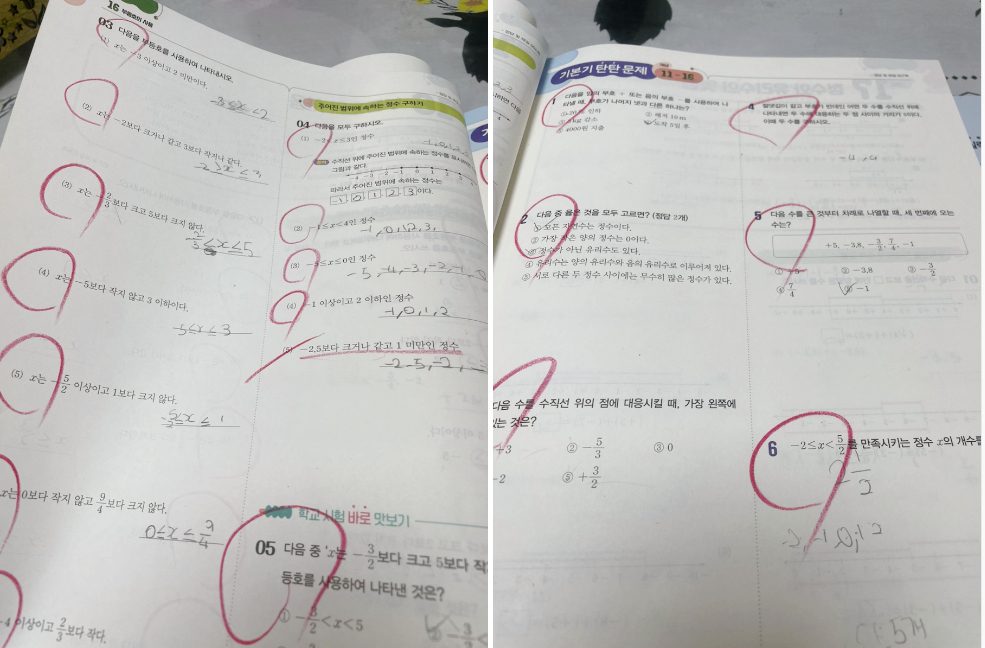 16 부등호의 사용
03 다음을 부등호를 사용하여 나타내시오.
(1) x는 -3 이상이고 2 미만이다.
-3≤x<2
(2) x는 -2보다 크거나 같고 3보다 작거나 같다.
(3) x는 -2/3보다 크고 5보다 크지 않다.
(4) x는 -5보다 작지 않고 3 이하이다.
-5≤x≤3
(5) x는 -5/2 이상이고 1보다 크지 않다.
-5/2≤x≤1
x는 0보다 작지 않고 9/4보다 크지 않다.
0≤x≤9/4
-4 이상이고 2/3보다 작다.
주어진 범위에 속하는 정수 구하기
04 다음을 모두 구하시오.
(1) -2<x≤3인 정수
수직선 위에 주어진 범위에 속하는 정수를 표시하
그림과 같다.
-4 -3 -2 -1 0 1
따라서 주어진 범위에 속하는 정수는
-1, 0, 1, 2, 3이다.
(2) -1≤x<4인 정수
-1,0,1,2,3,
(3) -5≤x≤0인 정수
-5,-4,-3,-2,-1,-0
(4) -1 이상이고 2 이하인 정수
-1,0,1,2
(5) -2.5보다 크거나 같고 1 미만인 정수
-2.5,-2,
학교 시험 바로 맛보기
05 다음 중 'x는 -3/2보다 크고 5보다 작
등호를 사용하여 나타낸 것은?
① -3/2<x<5
② -3/2
기본기 탄탄 문제 11-16
1 다음을 양의 부호 + 또는 음의 부호 -를 사용하여 나
타낼 때, 부호가 나머지 넷과 다른 하나는?
⑤ 4000원 지출
2 다음 중 옳은 것을 모두 고르면? (정답 2개)
① 모든 자연수는 정수이다.
② 가장 작은 양의 정수는 0이다.
③ 정수가 아닌 유리수도 있다.
④ 유리수는 양의 유리수와 음의 유리수로 이루어져 있다.
⑤ 서로 다른 두 정수 사이에는 무수히 많은 정수가 있다.
다음 수를 수직선 위의 점에 대응시킬 때, 가장 왼쪽에
있는 것은?
+3 ② -5/3 ③ 0
-2 ⑤ +3/2
4 절댓값이 같고 부호가 반대인 어떤 두 수를 수직선 위에
나타내면 두 수에 대응하는 두 점 사이의 거리가
이때 두 수를 구하시오.
5 다음 수를 큰 것부터 차례로 나열할 때, 세 번째에 오는
수는?
+5, -3.8, -3/2, 7/4, -1
① +5 ② -3.8 ③ -3/2
④ 7/4 ⑤ -1
6 -2≤x<5/2를 만족시키는 정수 x의 개수를